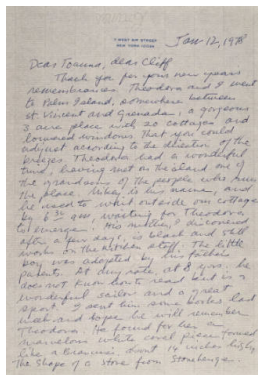 7 WEST 81st STREET
NEW YORK 10024
Jan 12, 1978
Dear Joanna, dear Cliff
Thank you for your new years
remembrances. Theodora and I went
to Palm Island, somewhere between
St Vincent and Grenada, a gorgeous
3 acre place with 20 cottages and
louvered windows that you could
adjust according to the direction of the
breezes. Theodora had a wonderful
time, having met on the island
the grandson of the people who run
the place. Mikey is his name, and
he used to wait outside our cottage
by 6 30 am, waiting for Theodora
to emerge. His mother, I discovered
after a few days, is black and still
works on the kitchen staff. The little
boy was adopted by his father's
parents. At any rate, at 8 yrs. he
does not know how to read but is a
wonderful sailor and a great
sport. I sent him some books last
week and hope he will remember
Theodora. He found for her a
marvelous white coral piece, formed
like a branch, about 14 inches high,
the shape of a stone from Stonehenge